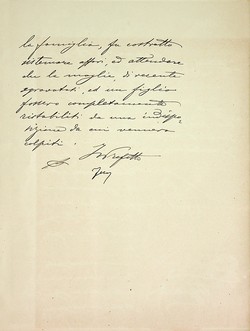 la famiglia, fu costretto
sistemare affari, ed attendere
che la moglie, di recente
sgravatasi, ed un figlio
fossero completamente
ristabiliti da una indispo-
sizione da cui vennero
colpiti.
Il Prefetto